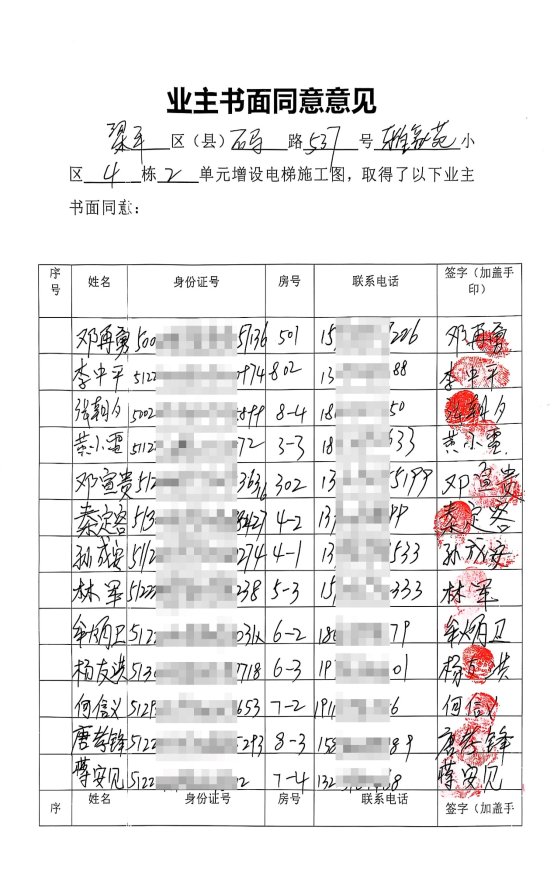 业主书面同意意见
梁平区（县）石马路537号雅馨苑小
区4栋2单元增设电梯施工图，取得了以下业主
书面同意：
序号 姓名 身份证号 房号 联系电话 签字（加盖手印）
邓再勇 500 5136 501 15 226 邓再勇
李中平 5122 0974 802 13 88 李中平
张朝夕 5002 899 8-4 18 50 张朝夕
黄小雷 5112 72 3-3 18 633 黄小雷
邓宣贵 512 3636 302 13 5199 邓宣贵
秦定容 513 3427 4-2 13 99 秦定容
孙成安 512 0274 4-1 13 533 孙成安
林军 51222 238 5-3 15 333 林军
牟炳卫 5122 031X 6-2 180 79 牟炳卫
杨友洪 5130 1718 6-3 19 01 杨友洪
何信义 5129 653 7-2 191 6 何信义
唐孝锋 5122 5293 8-3 158 89 唐孝锋
蒋安见 5122 02 7-4 132 58 蒋安见
序 姓名 身份证号 房号 联系电话 签字（加盖手